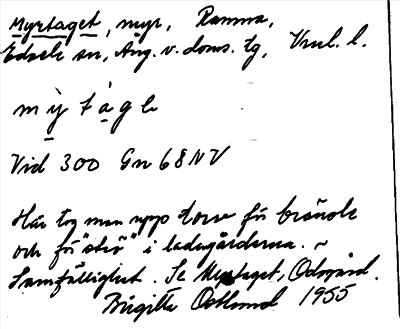 Myrtaget, myr, Ramna,
Edsele sn, Ång. v. doms. tg, Vnl. l.
mỳ t à g e
Vid 300 Gn 68 NV
Här tog man upp torv för bränsle
och för "strö" i ladugårdarna. ~
Samfällighet. Se Myrtaget, Ödsgård.
Birgitta Östlund 1955